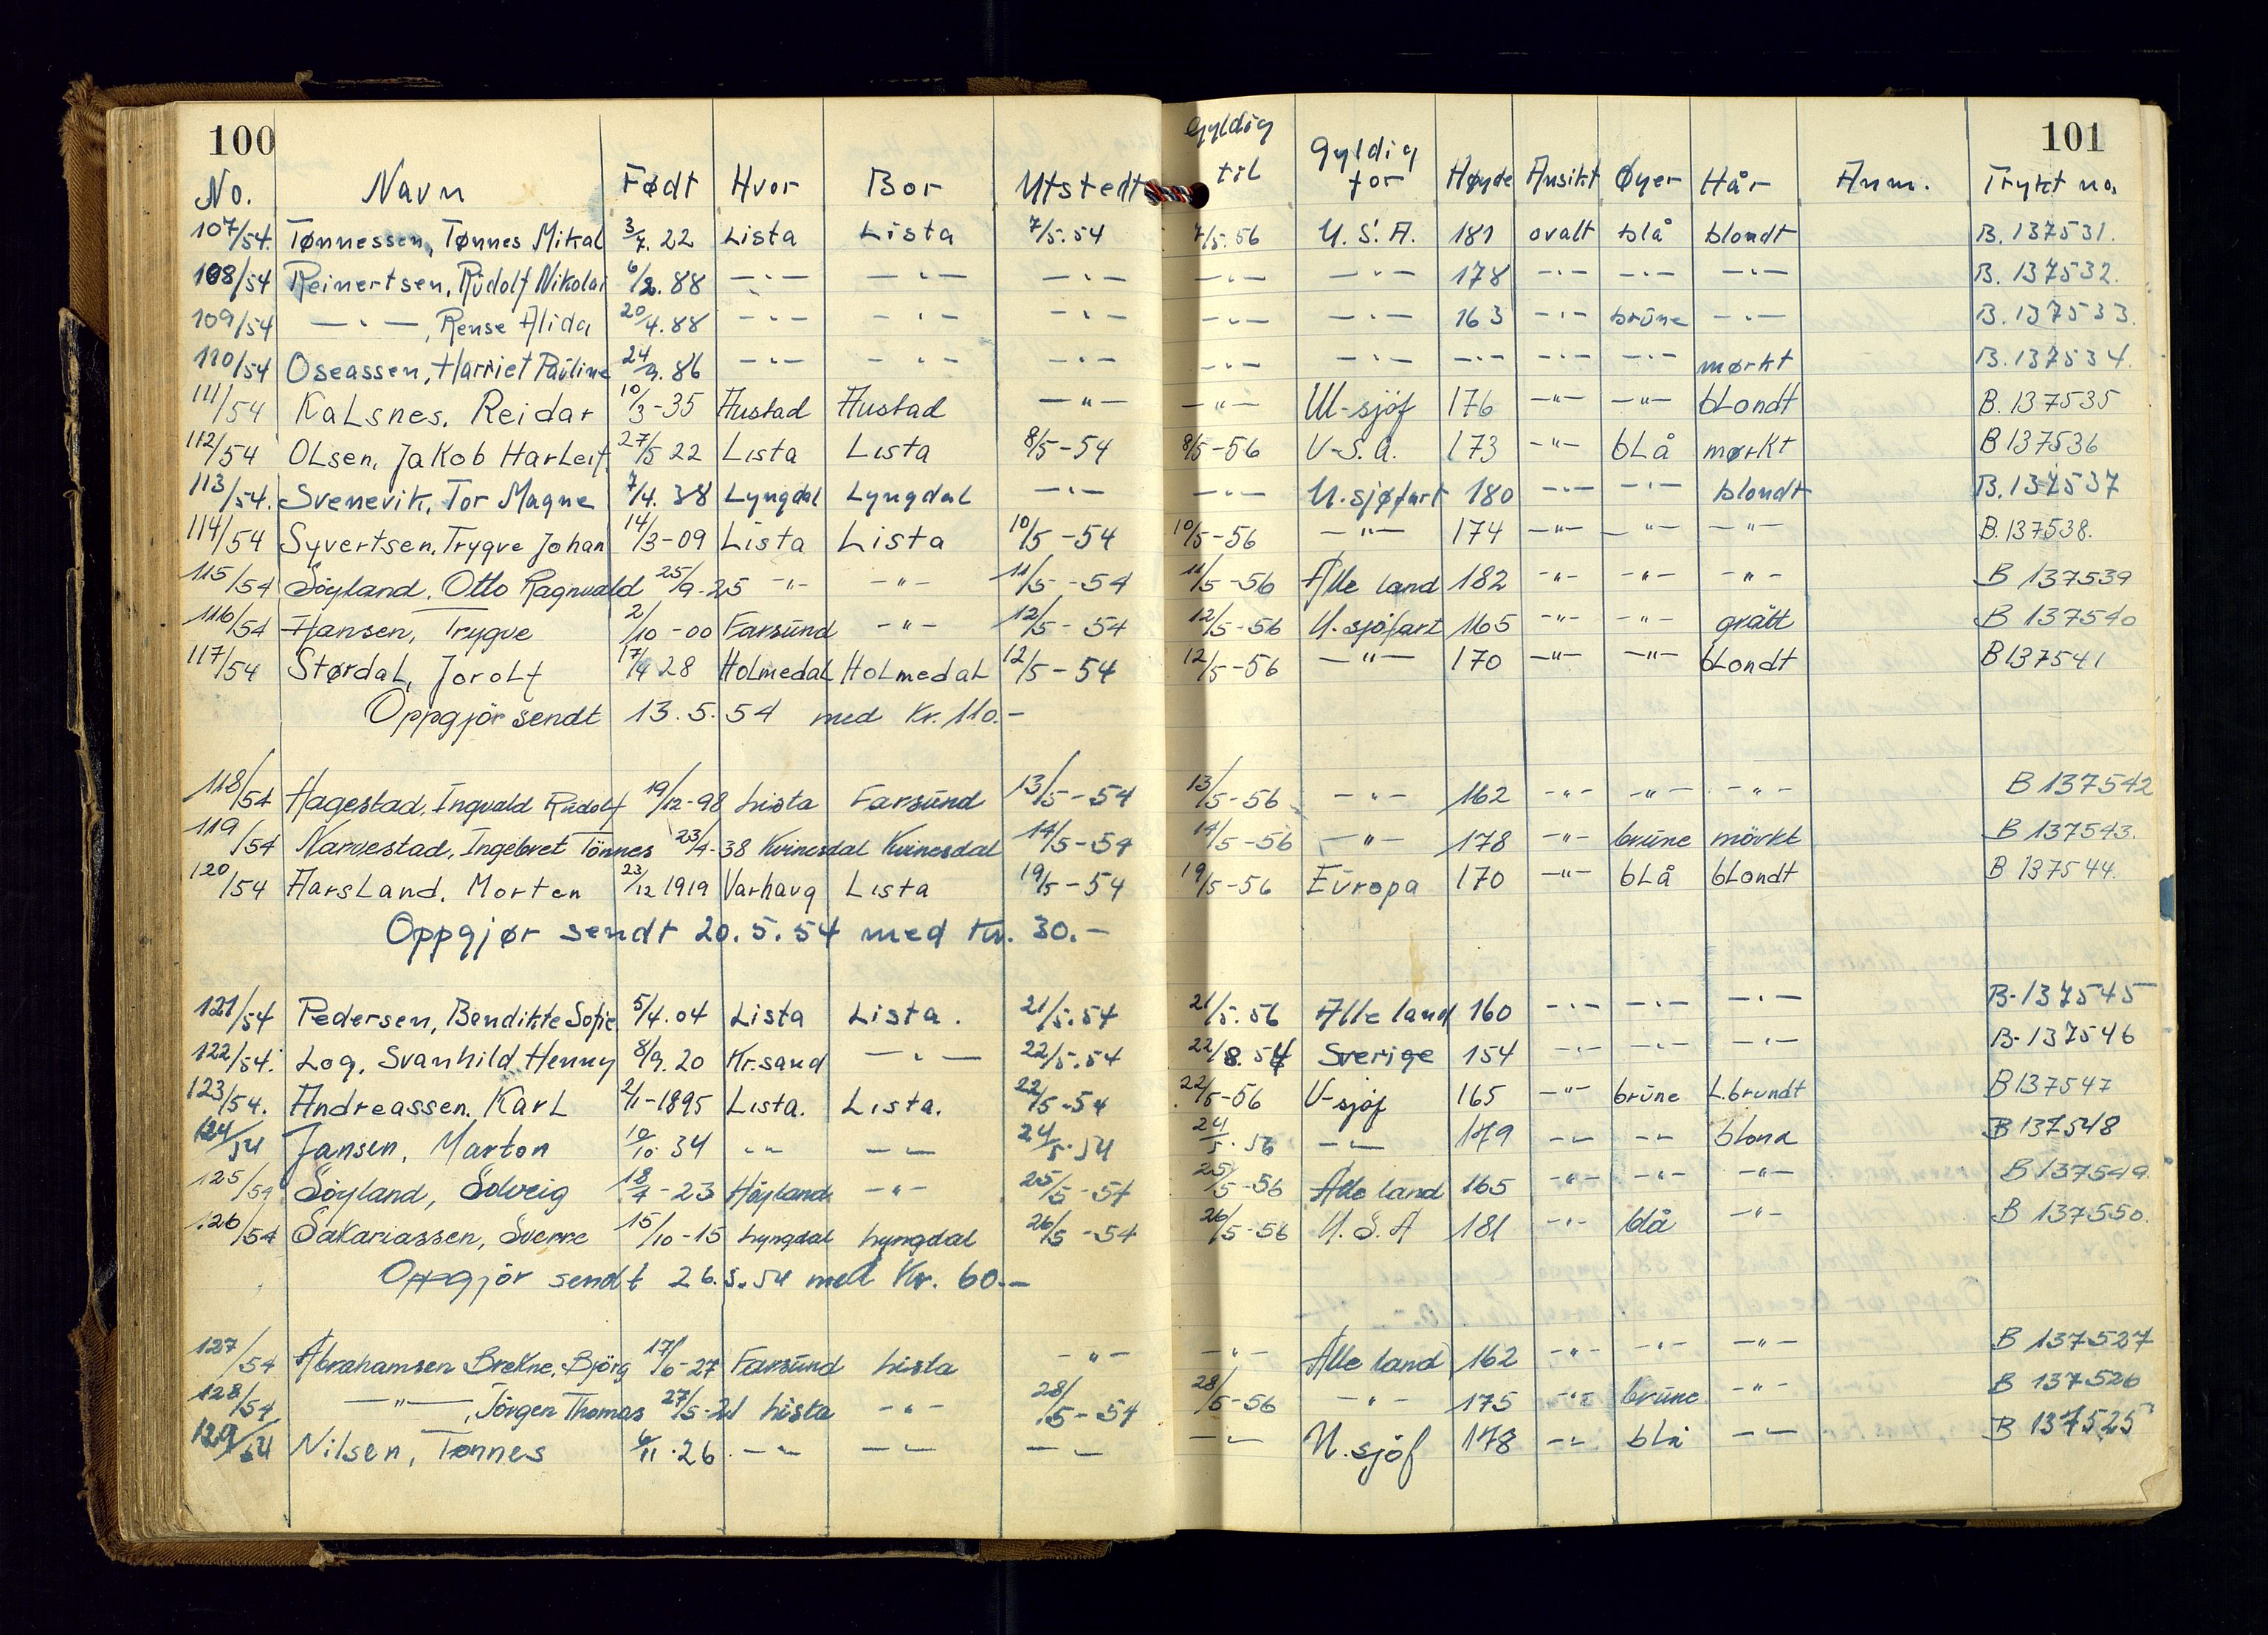 100 101
No. Navn Født Hvor Bor Utstedt Gyldig til Gyldig for Høyde Ansikt Øyer Hår Anm. Trykt no.
107/54. Tønnessen, Tønnes Mikal 3/7. 22 Lista Lista 7/5. 54 7/5. 56 U. S. A. 181 ovalt blå blondt B. 137531.
108/54 Reinertsen, Rudolf Nikolai 6/2. 88 —„— —„— —„— —„— —„— 178 —„— —„— —„— B. 137532.
109/54 —„—, Rense Alida 20/4. 88 —„— —„— —„— —„— —„— 163 —„— brune —„— B. 137533.
110/54 Oseassen, Harriet Pauline 24/9. 86 —„— —„— —„— —„— —„— —„— —„— —„— mørkt B. 137534.
111/54 Kalsnes, Reidar 10/3-35 Hustad Hustad —„— —„— U-sjöf 176 —„— —„— blondt B. 137535
112/54 Olsen, Jakob Harleif 27/5 22 Lista Lista 8/5-54 8/5-56 U-S.A. 173 —„— blå mørkt B 137536
113/54. Svenevik, Tor Magne 7/4. 38 Lyngdal Lyngdal —„— —„— U.sjøfart 180 —„— —„— blondt B. 137537
114/54 Syvertsen, Trygve Johan 14/3-09 Lista Lista 10/5-54 10/5-56 —„— 174 —„— —„— —„— B. 137538.
115/54 Söyland, Otto Ragnvald 25/9-25 —„— —„— 11/5-54 11/5-56 Alle land 182 —„— —„— —„— B 137539
116/54 Hansen, Trygve 2/10-00 Farsund —„— 12/5-54 12/5-56 U.sjöfart 165 —„— —„— grått B 137540
117/54 Størdal, Jorolf 17/9 28 Holmedal Holmedal 12/5-54 12/5-56 —„— 170 —„— —„— blondt B 137541
Oppgjör sendt 13.5.54 med Kr. 110.-
118/54 Hagestad, Ingvald Rudolf 19/12-98 Lista Farsund 13/5-54 13/5-56 —„— 162 —„— —„— —„— B 137542
119/54 Narvestad, Ingebret Tönnes 23/4-38 Kvinesdal Kvinesdal 14/5-54 14/5-56 —„— 178 —„— brune mörkt B 137543.
120/54 Aarsland, Morten 23/12 1919 Varhaug Lista 19/5-54 19/5-56 Europa 170 —„— blå blondt B 137544.
Oppgjør sendt 20.5.54 med Kr. 30.-
121/54 Pedersen, Bendikte Sofie 5/4. 04 Lista Lista. 21/5. 54 21/5. 56 Alle land 160 —„— —„— —„— B- 137545
122/54. Log, Svanhild Henny 8/9. 20 Kr.sand —„— 22/5. 54 22/8. 54 Sverige 154 —„— —„— —„— B- 137546
123/54. Andreassen, Karl 2/1-1895 Lista. Lista. 22/5-54 22/5-56 U-sjöf 165 —„— brune L.brundt B 137547
124/54 Jansen, Marton 10/10. 34 —„— —„— 24/5. 54 24/5. 56 —„— 179 —„— —„— blond B 137548
125/54 Söyland, Solveig 18/7-23 Höyland —„— 25/5-54 25/5-56 Alle land 165 —„— —„— —„— B 137549.
126/54 Sakariassen, Sverre 15/10-15 Lyngdal Lyngdal 26/5-54 26/5-56 U.S.A 181 —„— blå —„— B 137550.
Oppgjör sendt 26.5.54 med Kr. 60.-
127/54 Abrahamsen Brekne, Björg 17/6-27 Farsund Lista —„— —„— Alle land 162 —„— —„— —„— B 137527
128/54 —„—, Jörgen Thomas 27/5-21 Lista —„— 28/5-54 28/5-56 —„— 175 —„— brune —„— B 137526
129/54 Nilsen, Tønnes 6/11. 26 —„— —„— —„— —„— U.sjöf 178 —„— blå —„— B 137525